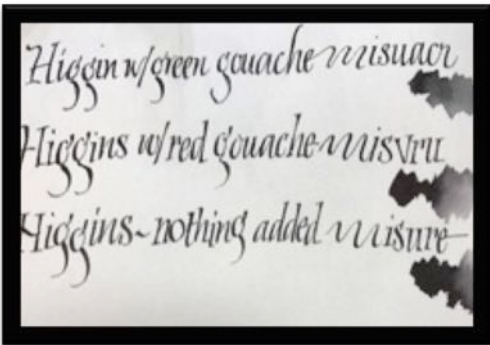 Higgin w/green gouache
Higgins w/red gouache
Higgins~nothing added misure